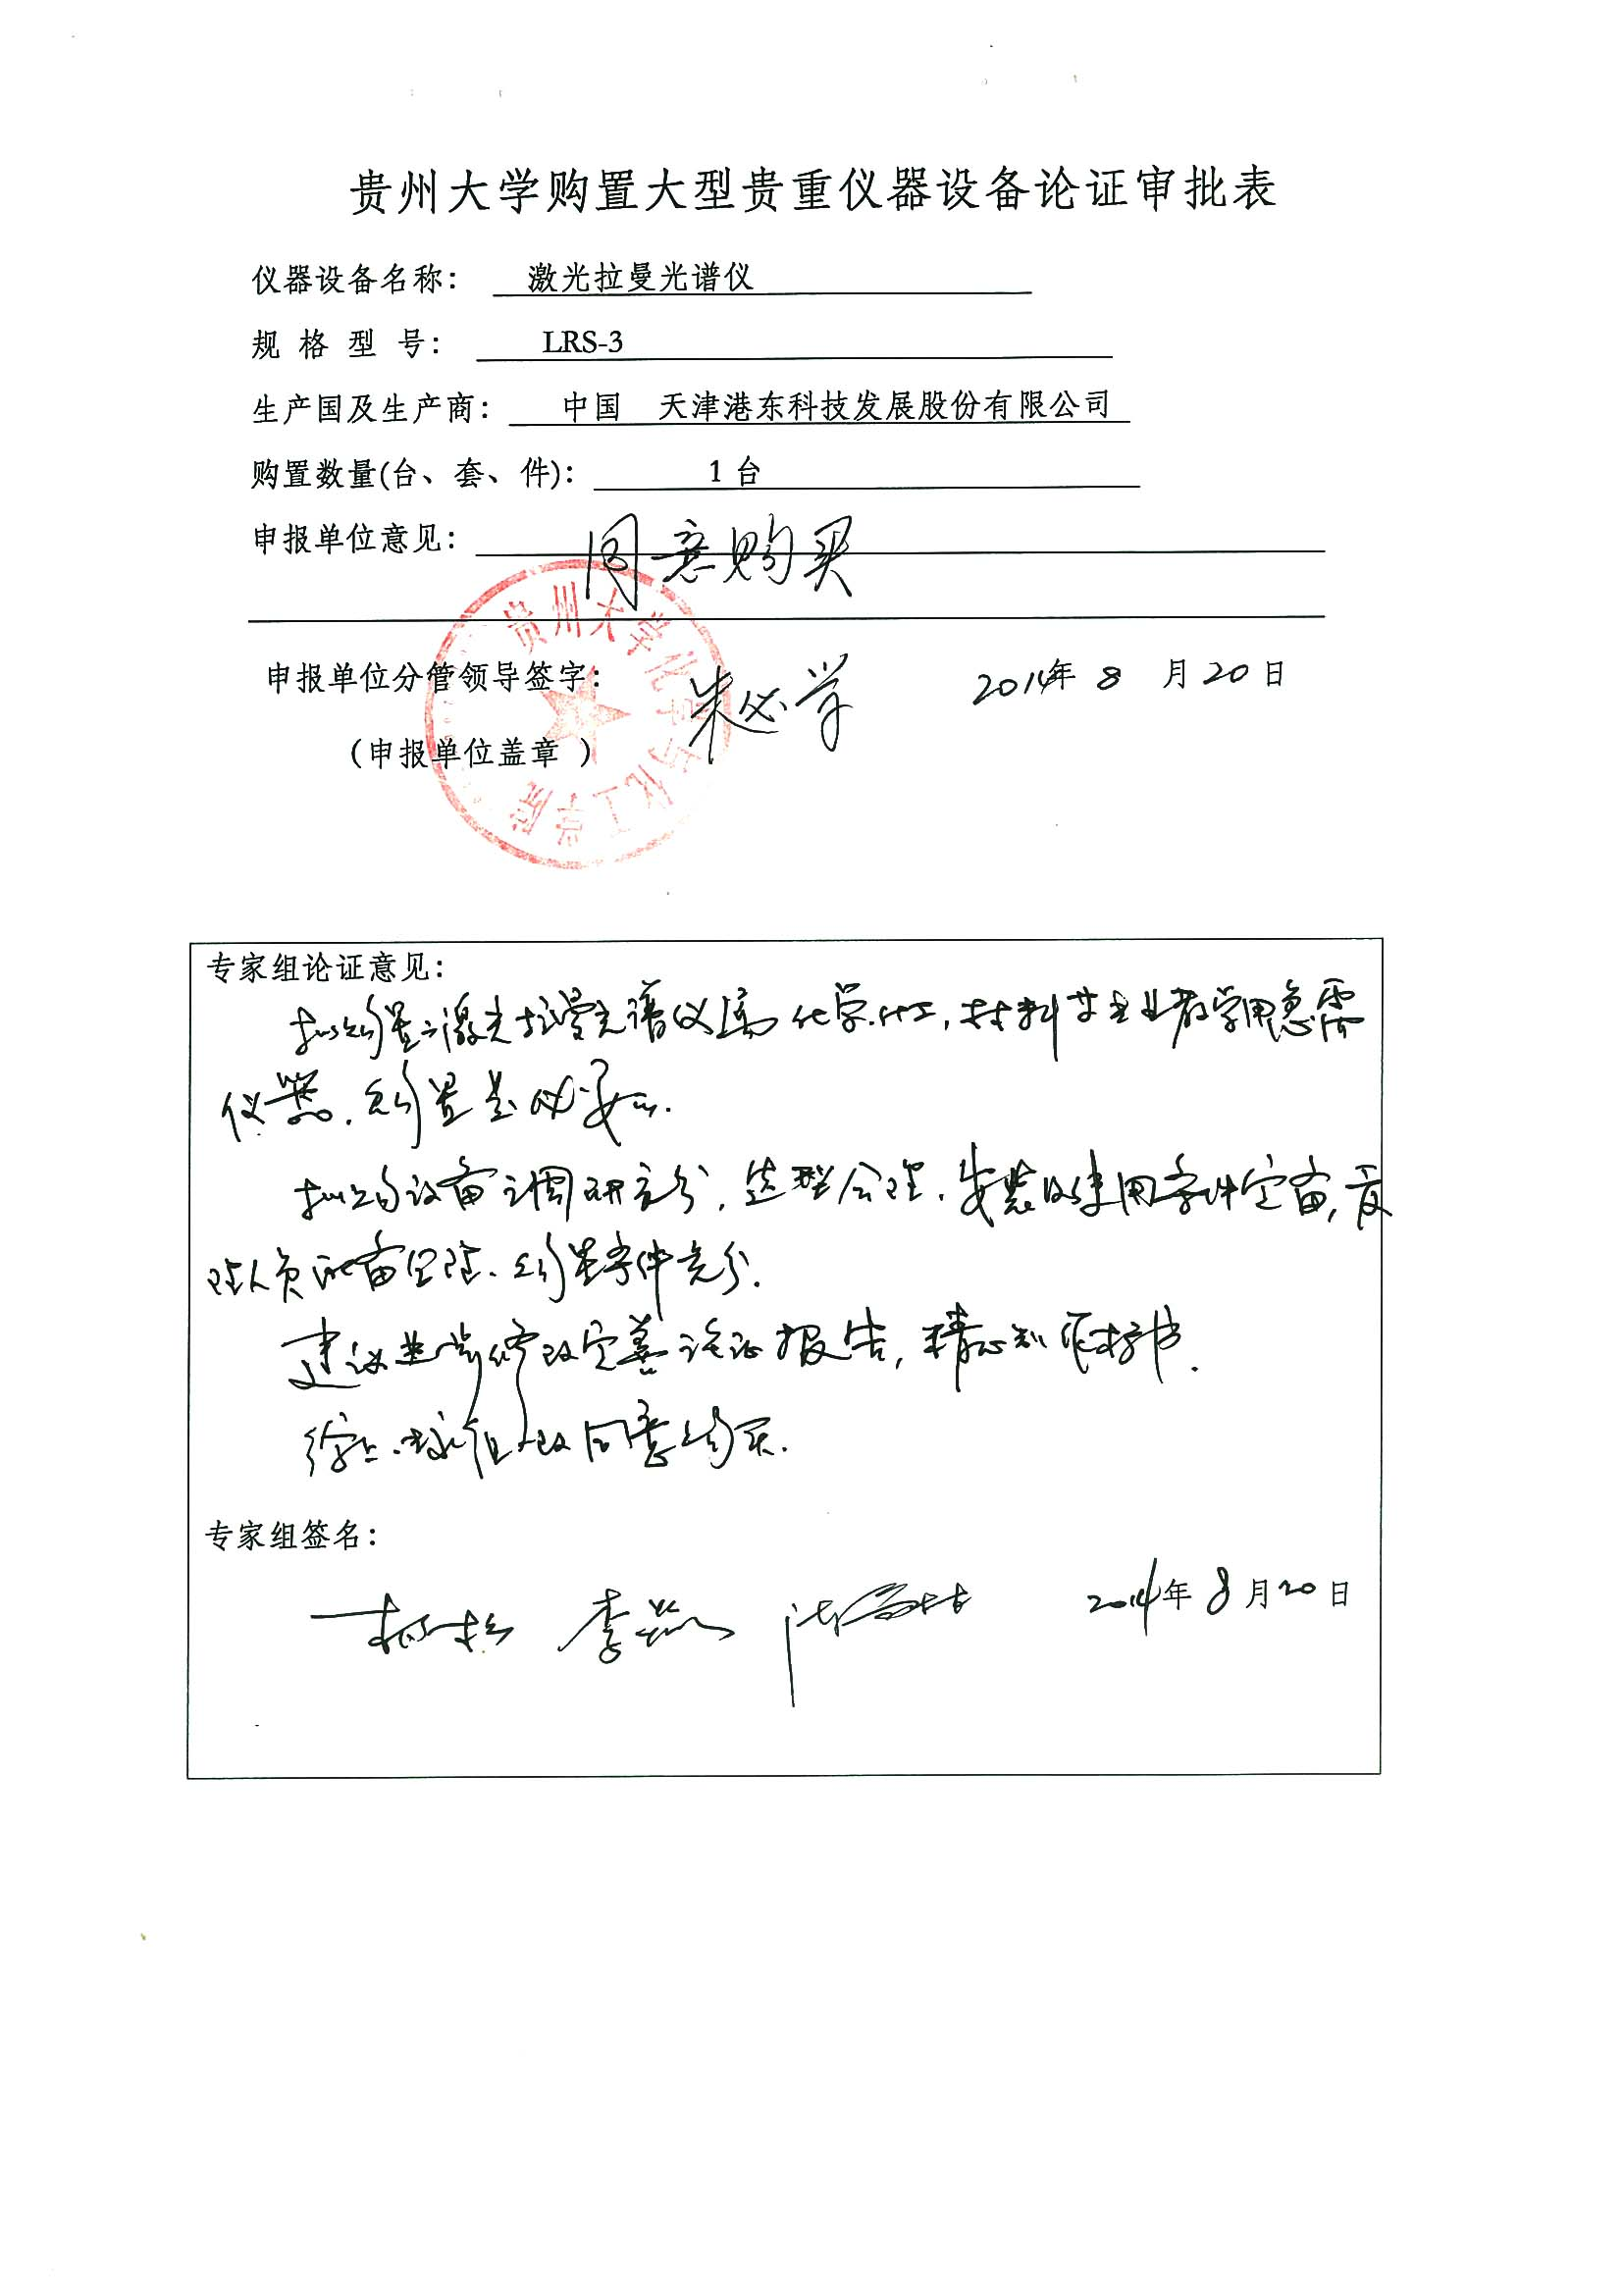 贵州大学购置大型贵重仪器设备论证审批表
仪器设备名称： 激光拉曼光谱仪
规 格 型 号： LRS-3
生产国及生产商： 中国 天津港东科技发展股份有限公司
购置数量(台、套、件)： 1 台
申报单位意见： 同意购买
贵州大学化学与化工学院
申报单位分管领导签字： 朱必学 2014年 8 月 20 日
（申报单位盖章 ）
专家组论证意见：
拟购置之激光拉曼光谱仪属化学.化工,材料等专业教学用急需
仪器.购置是必要的.
拟购设备调研充分,选型合理.安装及使用条件完备,管
理人员配备合理.购置条件充分.
建议进一步修改完善论证报告,精心制作标书.
综上.专家组同意购买.
专家组签名：
李 2014年 8 月 20 日